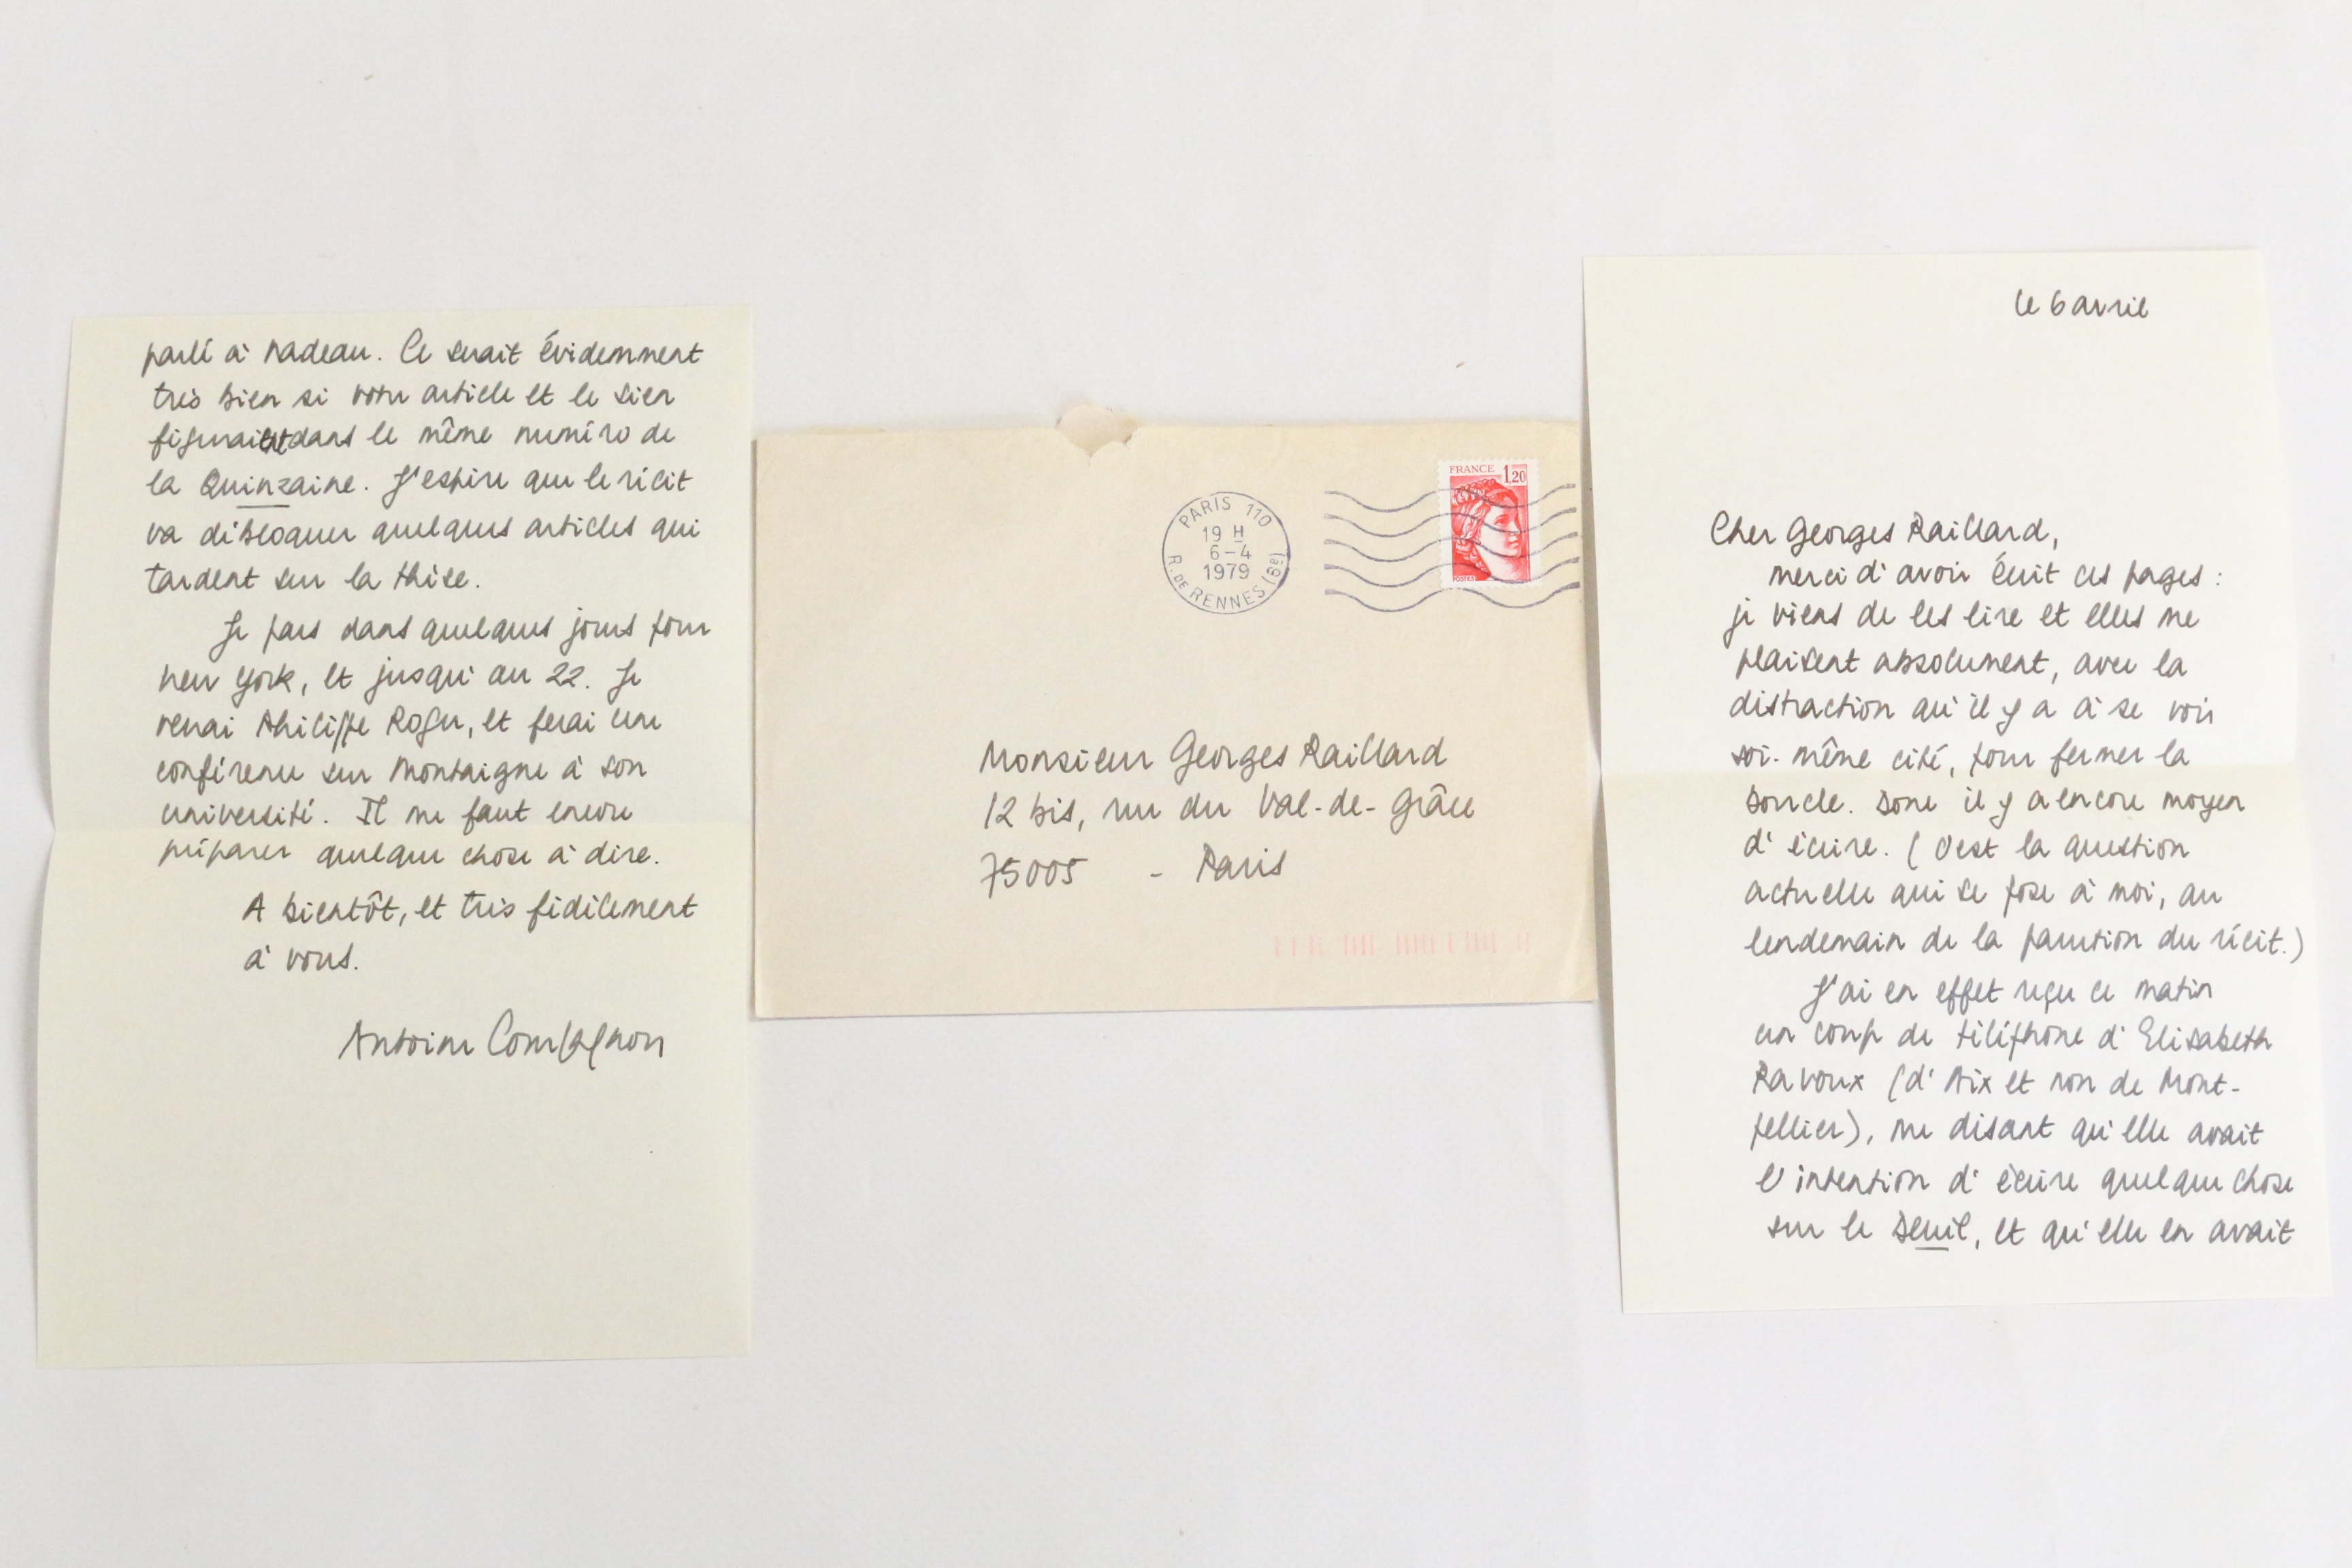 le 6 avril
Cher Georges Raillard,
merci d'avoir écrit ces pages :
je viens de les lire et elles me
plaisent absolument, avec la
distraction qu'il y a à se voir
soi-même cité, pour fermer la
boucle. Donc il y a encore moyen
d'écrire. (C'est la question
actuelle qui se pose à moi, au
lendemain de la parution du récit.)
J'ai en effet reçu ce matin
un coup de téléphone d'Elisabeth
Ravoux (d'Aix et non de Mont-
pellier), me disant qu'elle avait
l'intention d'écrire quelque chose
sur le Deuil, et qu'elle en avait
parlé à Nadeau. Ce serait évidemment
très bien si votre article et le sien
figuraient dans le même numéro de
la Quinzaine. J'espère que le récit
va débloquer quelques articles qui
tardent sur la thèse.
Je pars dans quelques jours pour
New York, et jusqu'au 22. Je
verrai Philippe Roger, et ferai une
conférence sur Montaigne à son
université. Il me faut encore
préparer quelque chose à dire.
A bientôt, et très fidèlement
à vous.
Antoine Compagnon
PARIS 110
19 H
6-4
1979
R. DE RENNES (6e)
FRANCE 1,20
POSTES
Monsieur Georges Raillard
12 bis, rue du Val-de-Grâce
75005 - Paris